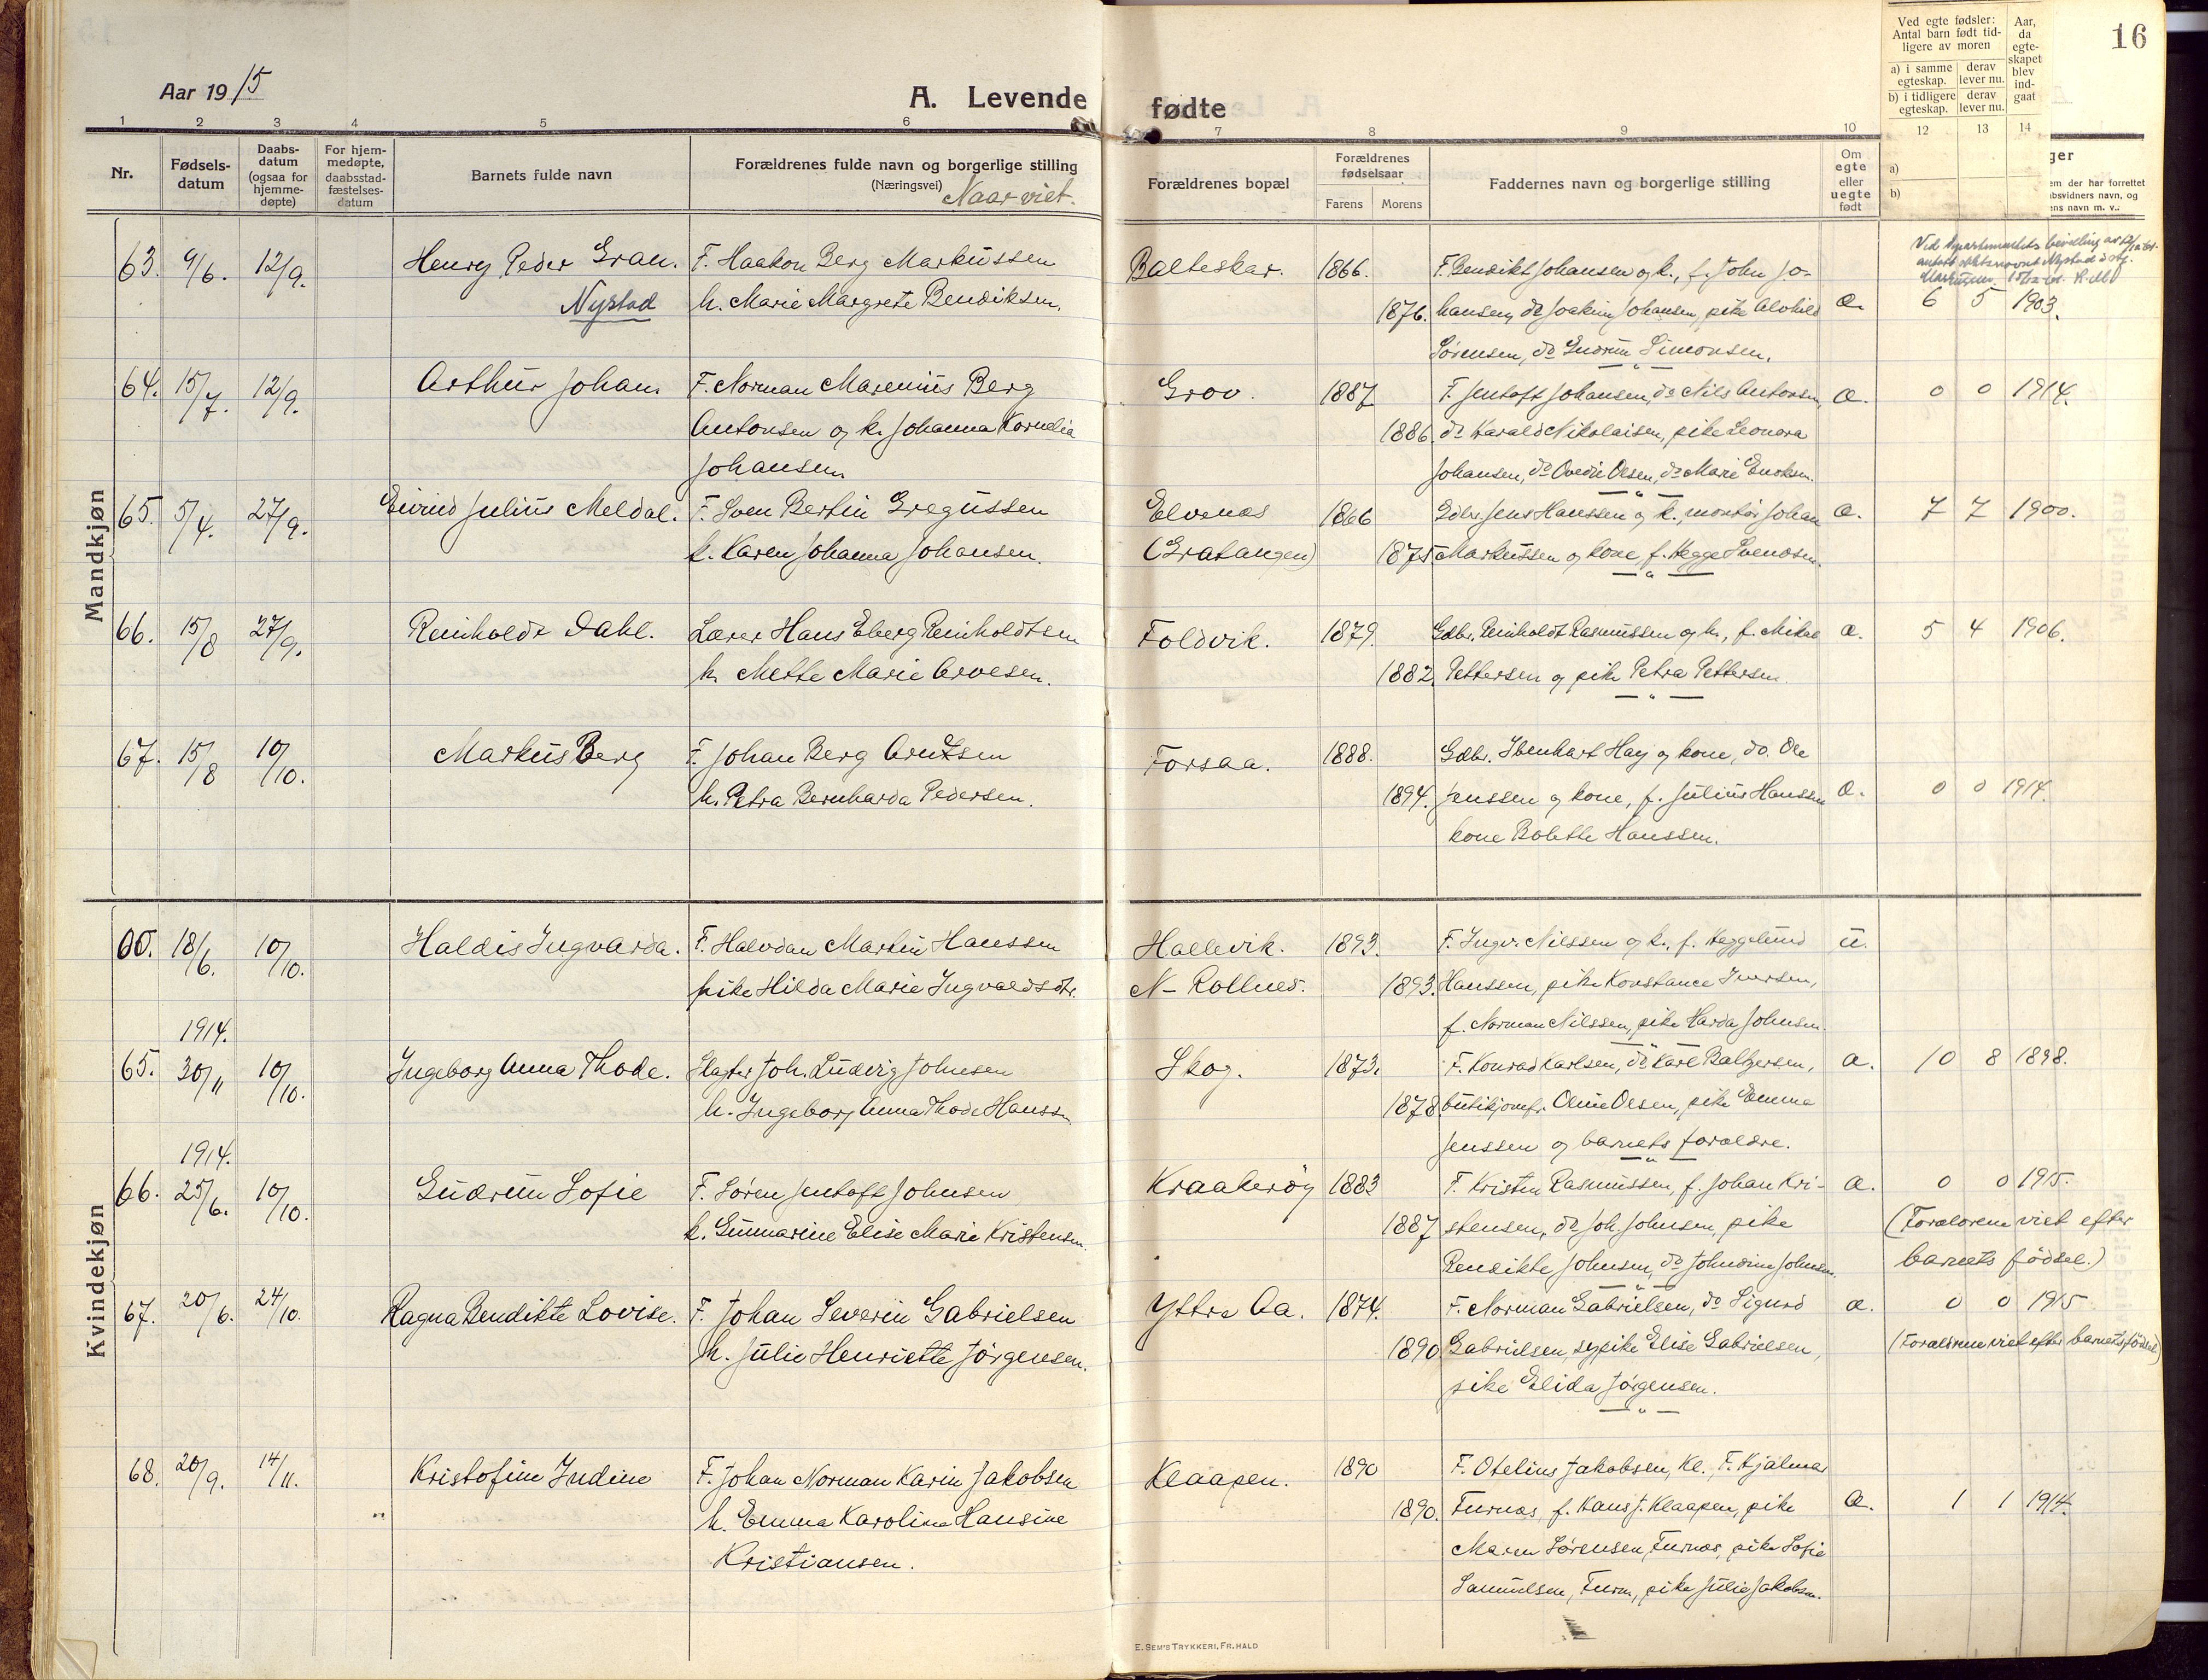 Aar 1915
A. Levende fødte
16
1 2 3 4 5 6 7 8 9 10
Ved egte fødsler:
Antal barn født tid-
ligere av moren
Aar,
da
egte-
skapet
blev
ind-
gaat
a) i samme egteskap.
derav lever nu.
b) i tidligere egteskap.
derav lever nu.
12 13 14
a)
b)
Nr.
Fødsels-
datum
Daabs-
datum
(ogsaa for
hjemme-
døpte)
For hjem-
medøpte,
daabsstad-
fæstelses-
datum
Barnets fulde navn
Forældrenes fulde navn og borgerlige stilling
(Næringsvei)
Naar viet.
Forældrenes bopæl
Forældrenes
fødselsaar
Farens Morens
Faddernes navn og borgerlige stilling
Om
egte
eller
uegte
født
ger
em der har forrettet
bsvidners navn, og
ens navn m. v.:
Mandkjøn
63. 9/6. 12/9. Henry Peder Gran. F. Haakon Berg Markussen Balteskar. 1866. F. Bendikt Johansen og k., f. John Jo-
Nystad k. Marie Margrete Bendiksen. 1876. hansen, do Joakim Johansen, pike Alvhild æ. 6 5 1903.
Sørensen, do Gudrun Simonsen.
64. 15/7. 12/9. Arthur Johan. F. Norman Marenius Berg Grov. 1887 F. Jentoft Johansen, do Nils Antonsen, æ. 0 0 1914.
Antonsen og k. Johanna Kornelia 1886. do Harald Nikolaisen, pike Leonora
Johansen. Johansen, do Ovedie Olsen, do Marie Enoksen.
65. 5/4. 27/9. Eivind Julius Meldal. F. Sven Bertin Gregussen Elvenes 1866 Gdbr. Jens Hanssen og k., montør Johan æ. 7 7 1900.
k. Karen Johanna Johansen. (Gratangen) 1875. Markussen og kone, f. Hegge Svendsen.
66. 15/8 27/9. Reinholdt Dahl. Lærer Hans Eberg Reinholdtsen Foldvik. 1879. Gdbr. Reinholdt Rasmussen og k., f. Mikal æ. 5 4 1906.
k. Mette Marie Arvesen. 1882. Pettersen og pike Petra Pettersen.
67. 15/8 10/10. Markus Berg F. Johan Berg Arntsen Forsaa. 1888. Gdbr. Ibenhart Hay og kone, do. Ole
k. Petra Bernharda Pedersen. 1894. Jenssen og kone, f. Julius Hanssen æ. 0 0 1914.
kone Bolette Hanssen.
Kvindekjøn
18/6. 10/10. Haldis Ingvarda. F. Halvdan Martin Hanssen Hallevik. 1893. F. Ingv. Nilssen og k., f. Heggelund u.
pike Hilda Marie Ingvaldsdtr. N- Rollnes. 1893. Hanssen, pike Konstance Iversen,
f. Norman Nilssen, pike Harda Johnsen.
1914.
65. 30/11 10/10. Ingeborg Anna Thode. Slagter Joh. Ludvig Johnsen Skog. 1873. F. Konrad Karlsen, do Karl Baltzersen, æ. 10 8 1898.
k. Ingeborg Anna Thode Hanssn 1878. butikjomfr. Oline Olsen, pike Emma
Jenssen og barnets forældre.
1914.
66. 25/6. 10/10. Gudrun Sofie F. Søren Jentoft Johnsen Kraakerøy 1883 F. Kristen Rasmussen, f. Johan Kri- æ. 0 0 1915.
k. Gunnarine Elise Marie Kristensen. 1887 stensen, do Joh. Johnsen, pike (Forældrene viet efter
Bendikte Johnsen, do Johndine Johnsen. barnets fødsel.)
67. 20/6. 24/10. Ragna Bendikte Lovise. F. Johan Severin Gabrielsen Yttre Aa. 1874. F. Norman Gabrielsen, do Sigurd æ. 0 0 1915
k. Julie Henriette Jørgensen. 1890 Gabrielsen, sypike Elise Gabrielsen, (Forældrene viet efter barnets fødsel)
pike Elida Jørgensen.
68. 20/9. 14/11. Kristofine Indine F. Johan Norman Karin Jakobsen Klaapen. 1890 F. Otelius Jakobsen, Kl. F. Hjalmar
k. Emma Karoline Hansine 1890. Furnes, f. Hans J. Klaapen, pike æ. 1 1 1914.
Kristiansen. Maren Sørensen, Furnes, pike Sofie
Samuelsen, Furn, pike Julie Jakobsen.
E. SEM'S TRYKKERI, FR. HALD